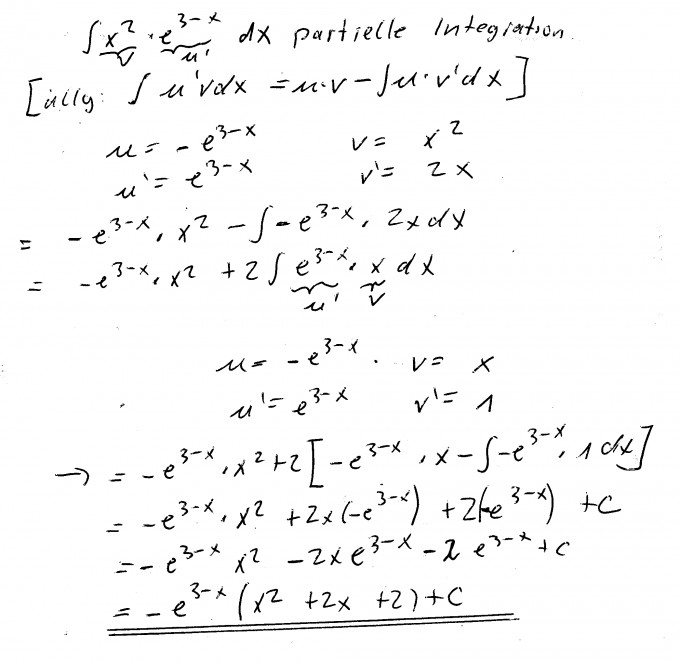 ∫ x² · e^(3-x) dx partielle Integration
v u'
[allg: ∫ u'v dx = u·v - ∫ u·v' dx]
u = - e^(3-x) v = x²
u' = e^(3-x) v' = 2x
= - e^(3-x) · x² - ∫ - e^(3-x) · 2x dx
= - e^(3-x) · x² + 2 ∫ e^(3-x) · x dx
u' v
u = - e^(3-x) . v = x
u' = e^(3-x) v' = 1
→ = - e^(3-x) · x² + 2 [ - e^(3-x) · x - ∫ - e^(3-x) · 1 dx ]
= - e^(3-x) · x² + 2x (-e^(3-x)) + 2(-e^(3-x)) + C
= - e^(3-x) x² - 2x e^(3-x) - 2 e^(3-x) + C
= - e^(3-x) (x² + 2x + 2) + C